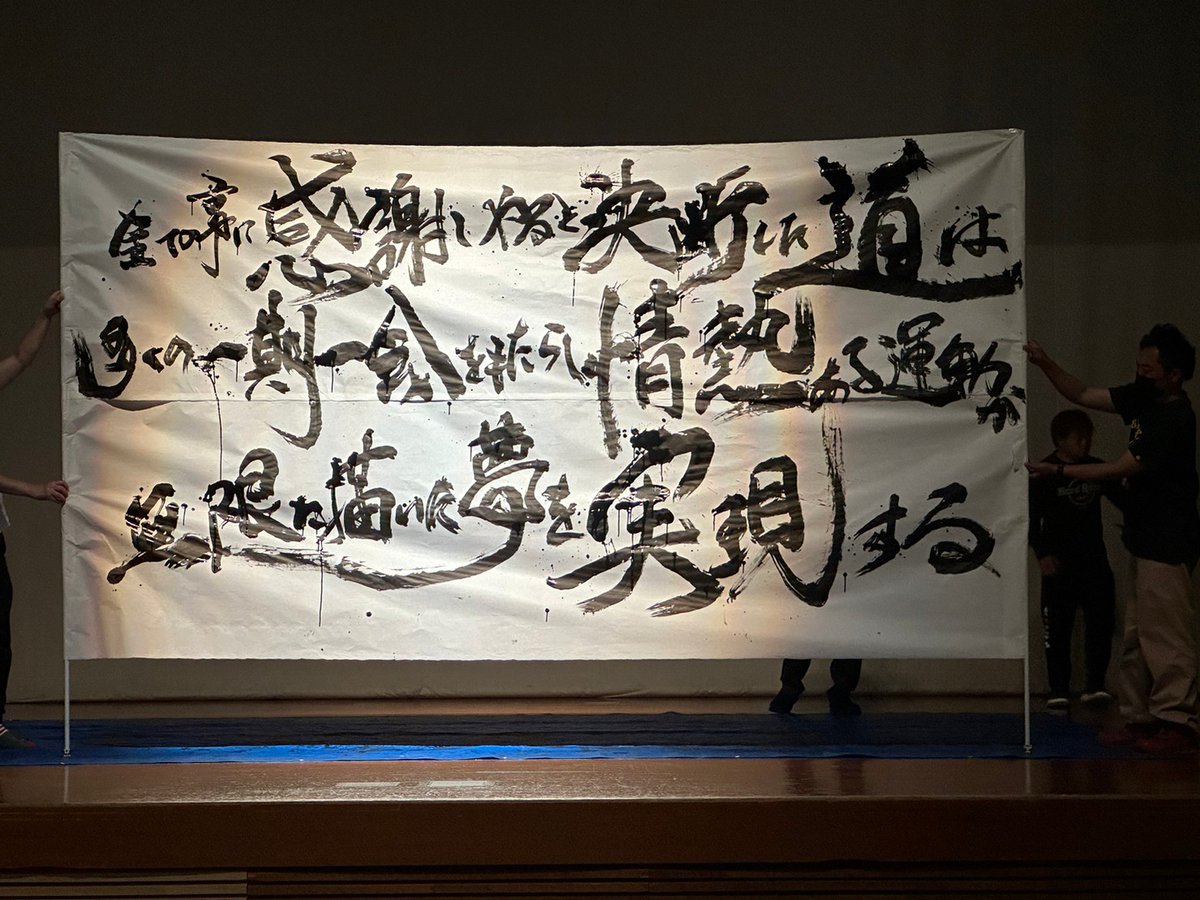 全ての事に感謝しやると決断した道は
多くの一期一会をもたらし情熱ある運動が
無限に描いた夢を実現する